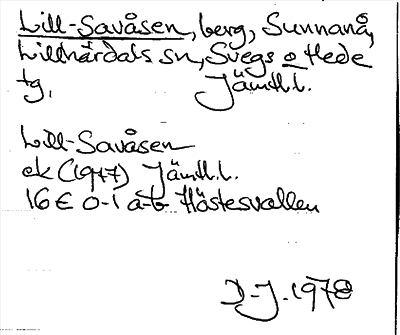 Lill-Savåsen, berg, Sunnanå,
Lillhärdals sn, Svegs o Hede
tg, Jämtl.l.
Lill-Savåsen
ek (1977) Jämtl.l.
16E 0-1 a-b Hästesvallen
D-J. 1978